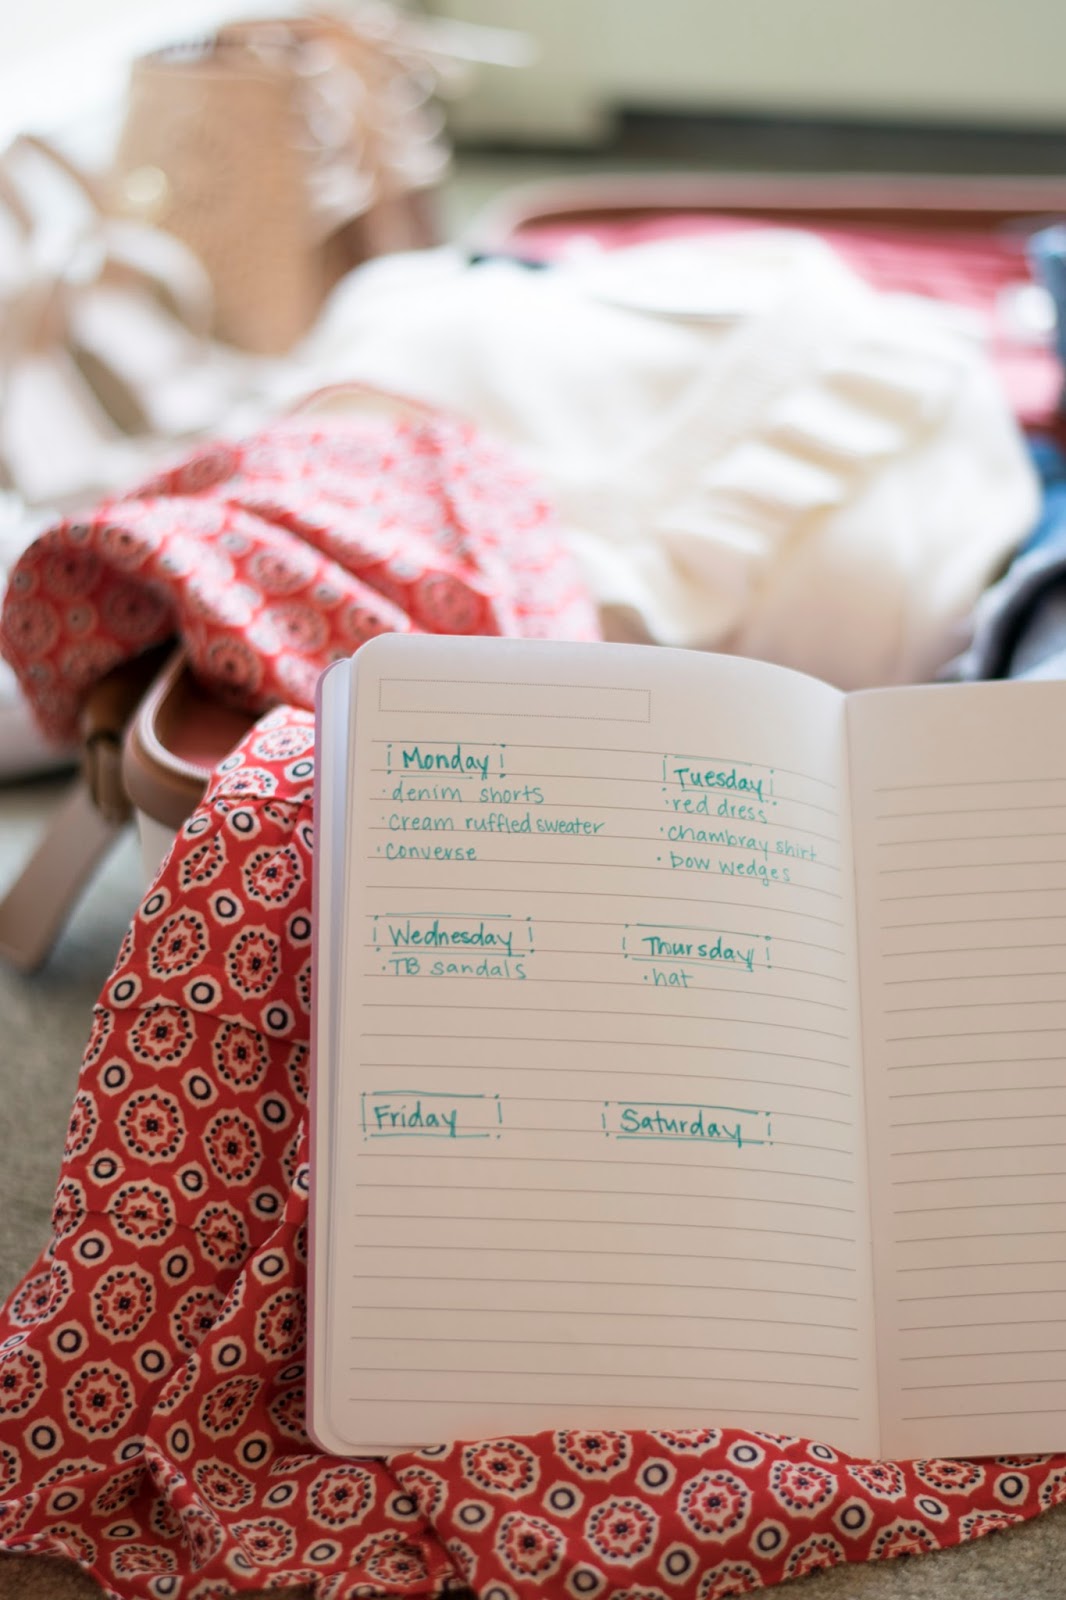 Monday
· denim shorts
· cream ruffled sweater
· converse
Tuesday
· red dress
· chambray shirt
· bow wedges
Wednesday
· TB sandals
Thursday
· hat
Friday
Saturday